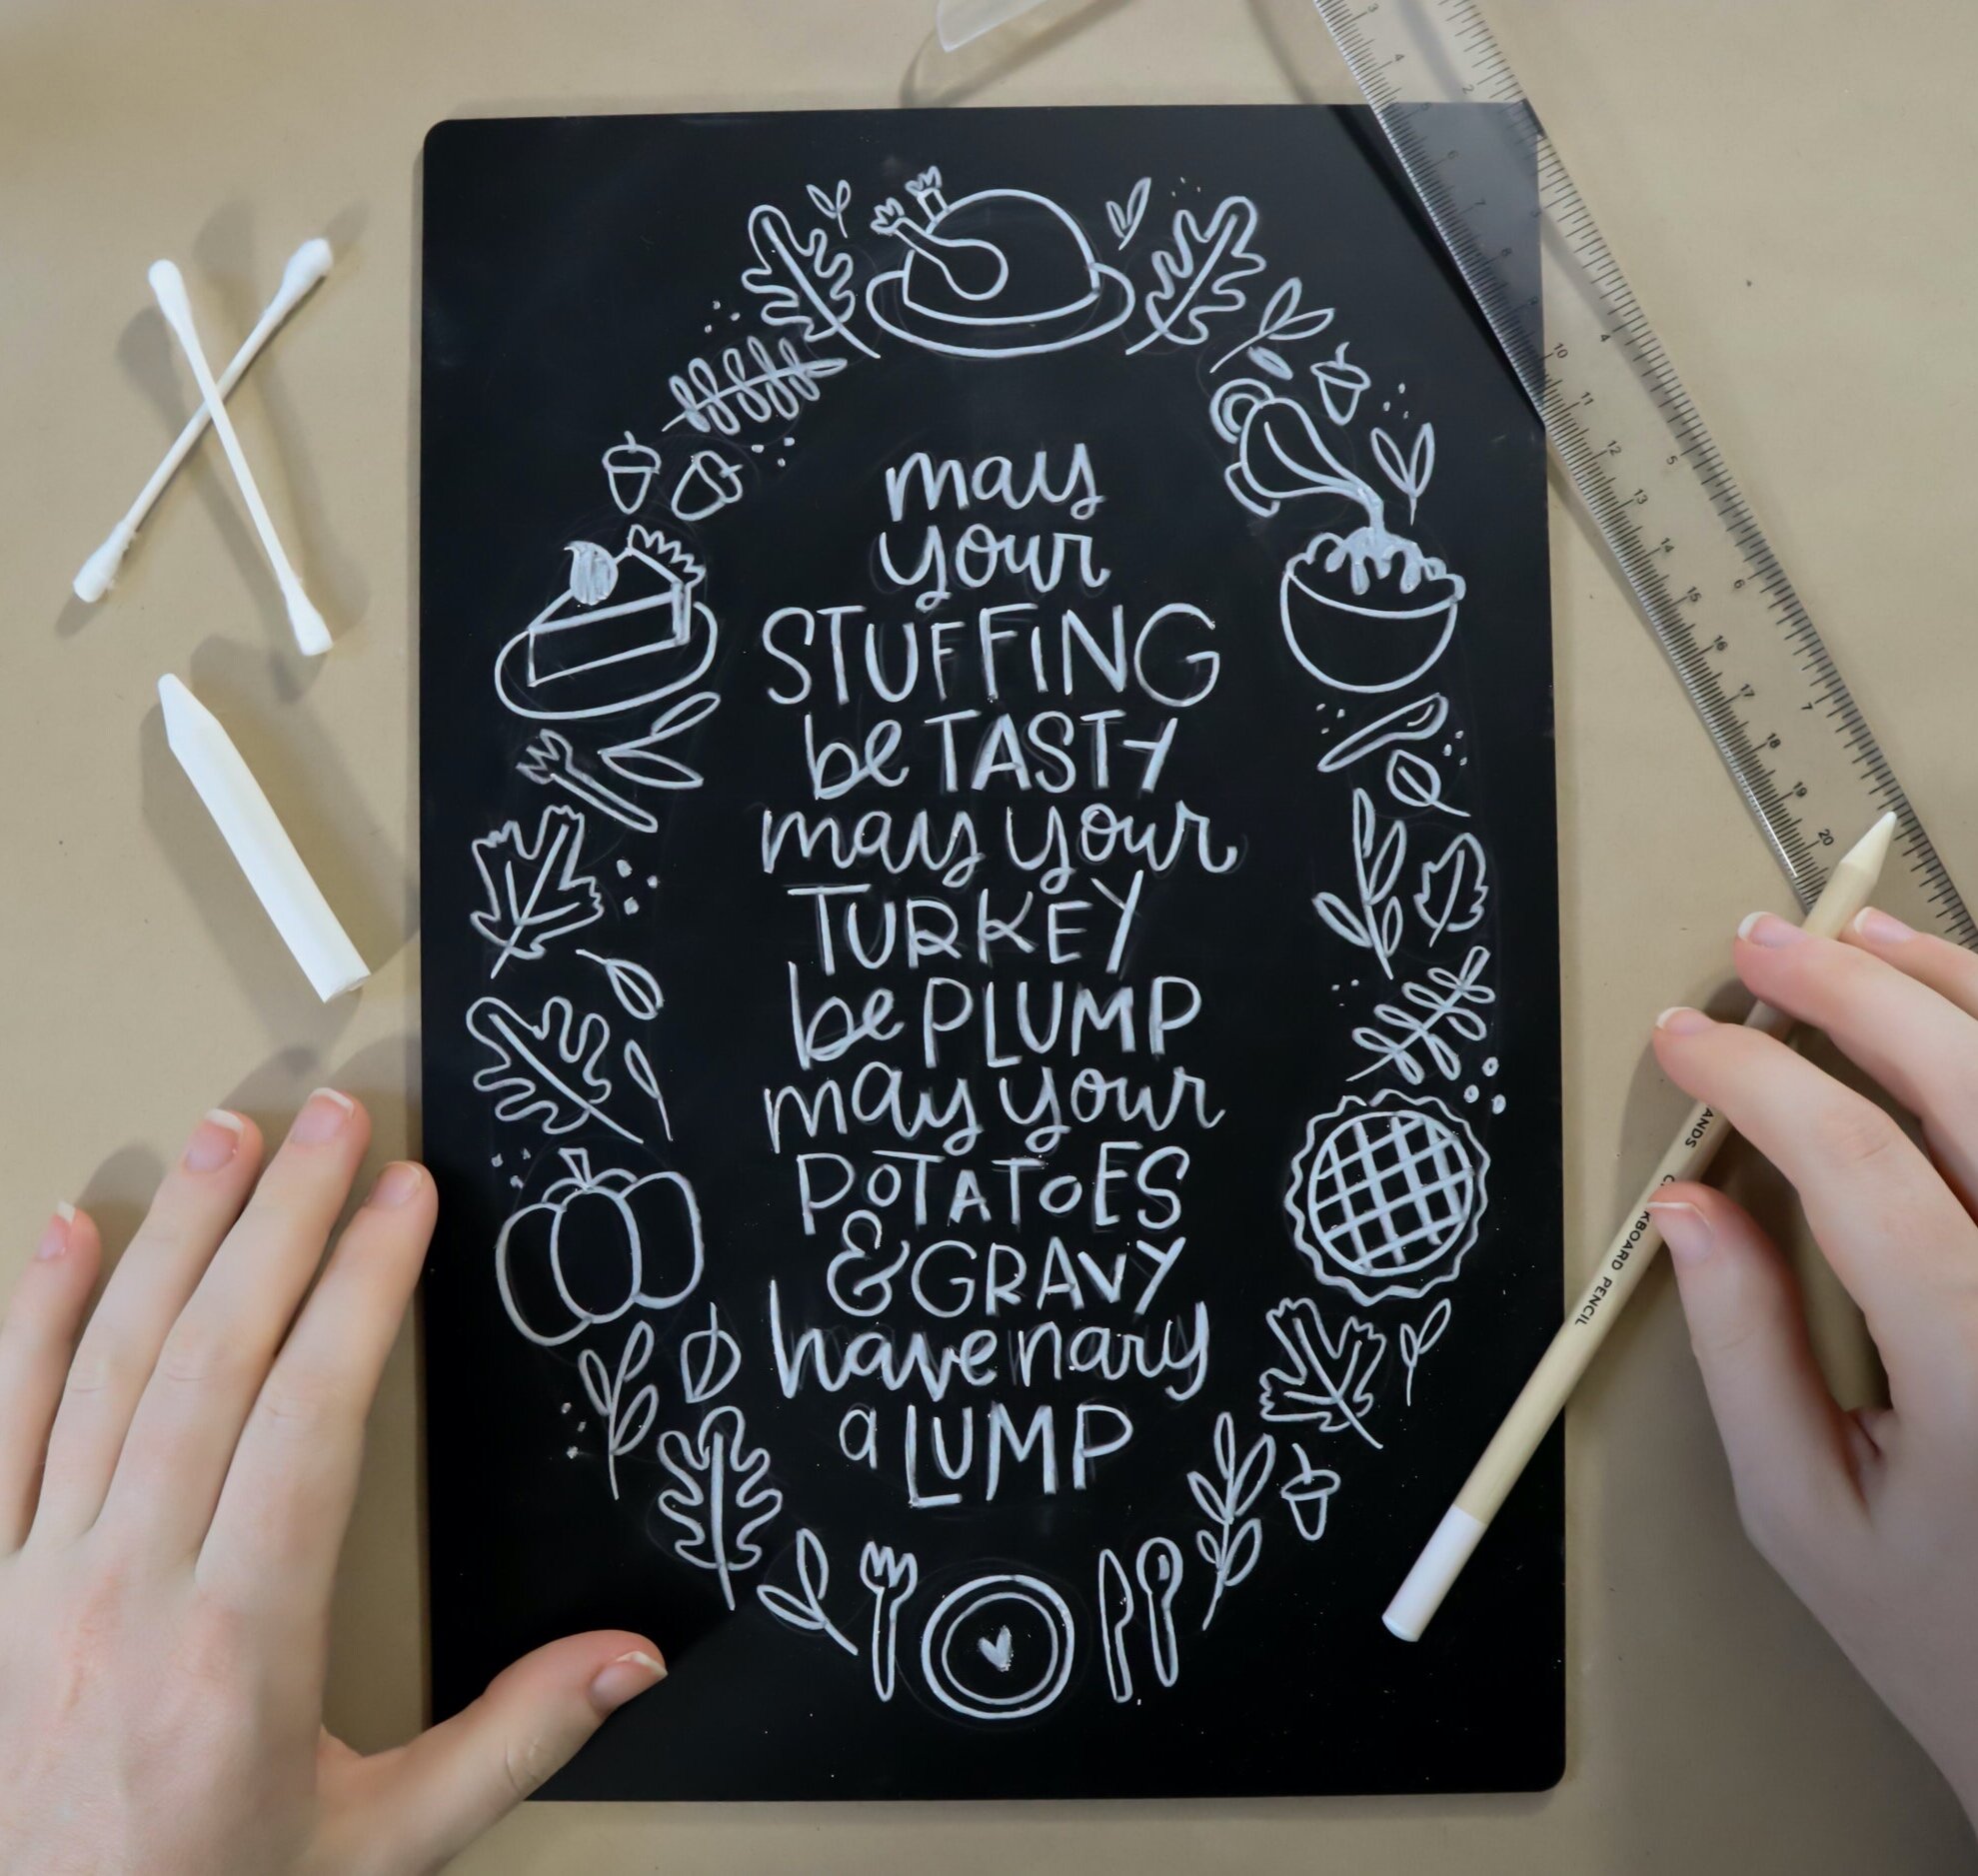 may
your
STUFFING
be TASTY
may your
TURKEY
be PLUMP
may your
POTATOES
& GRAVY
have nary
a LUMP
3
4
5
6
7
8
9
10
11
12
13
14
15
16
17
18
19
20
2
3
4
5
6
7
KBOARD PENCIL